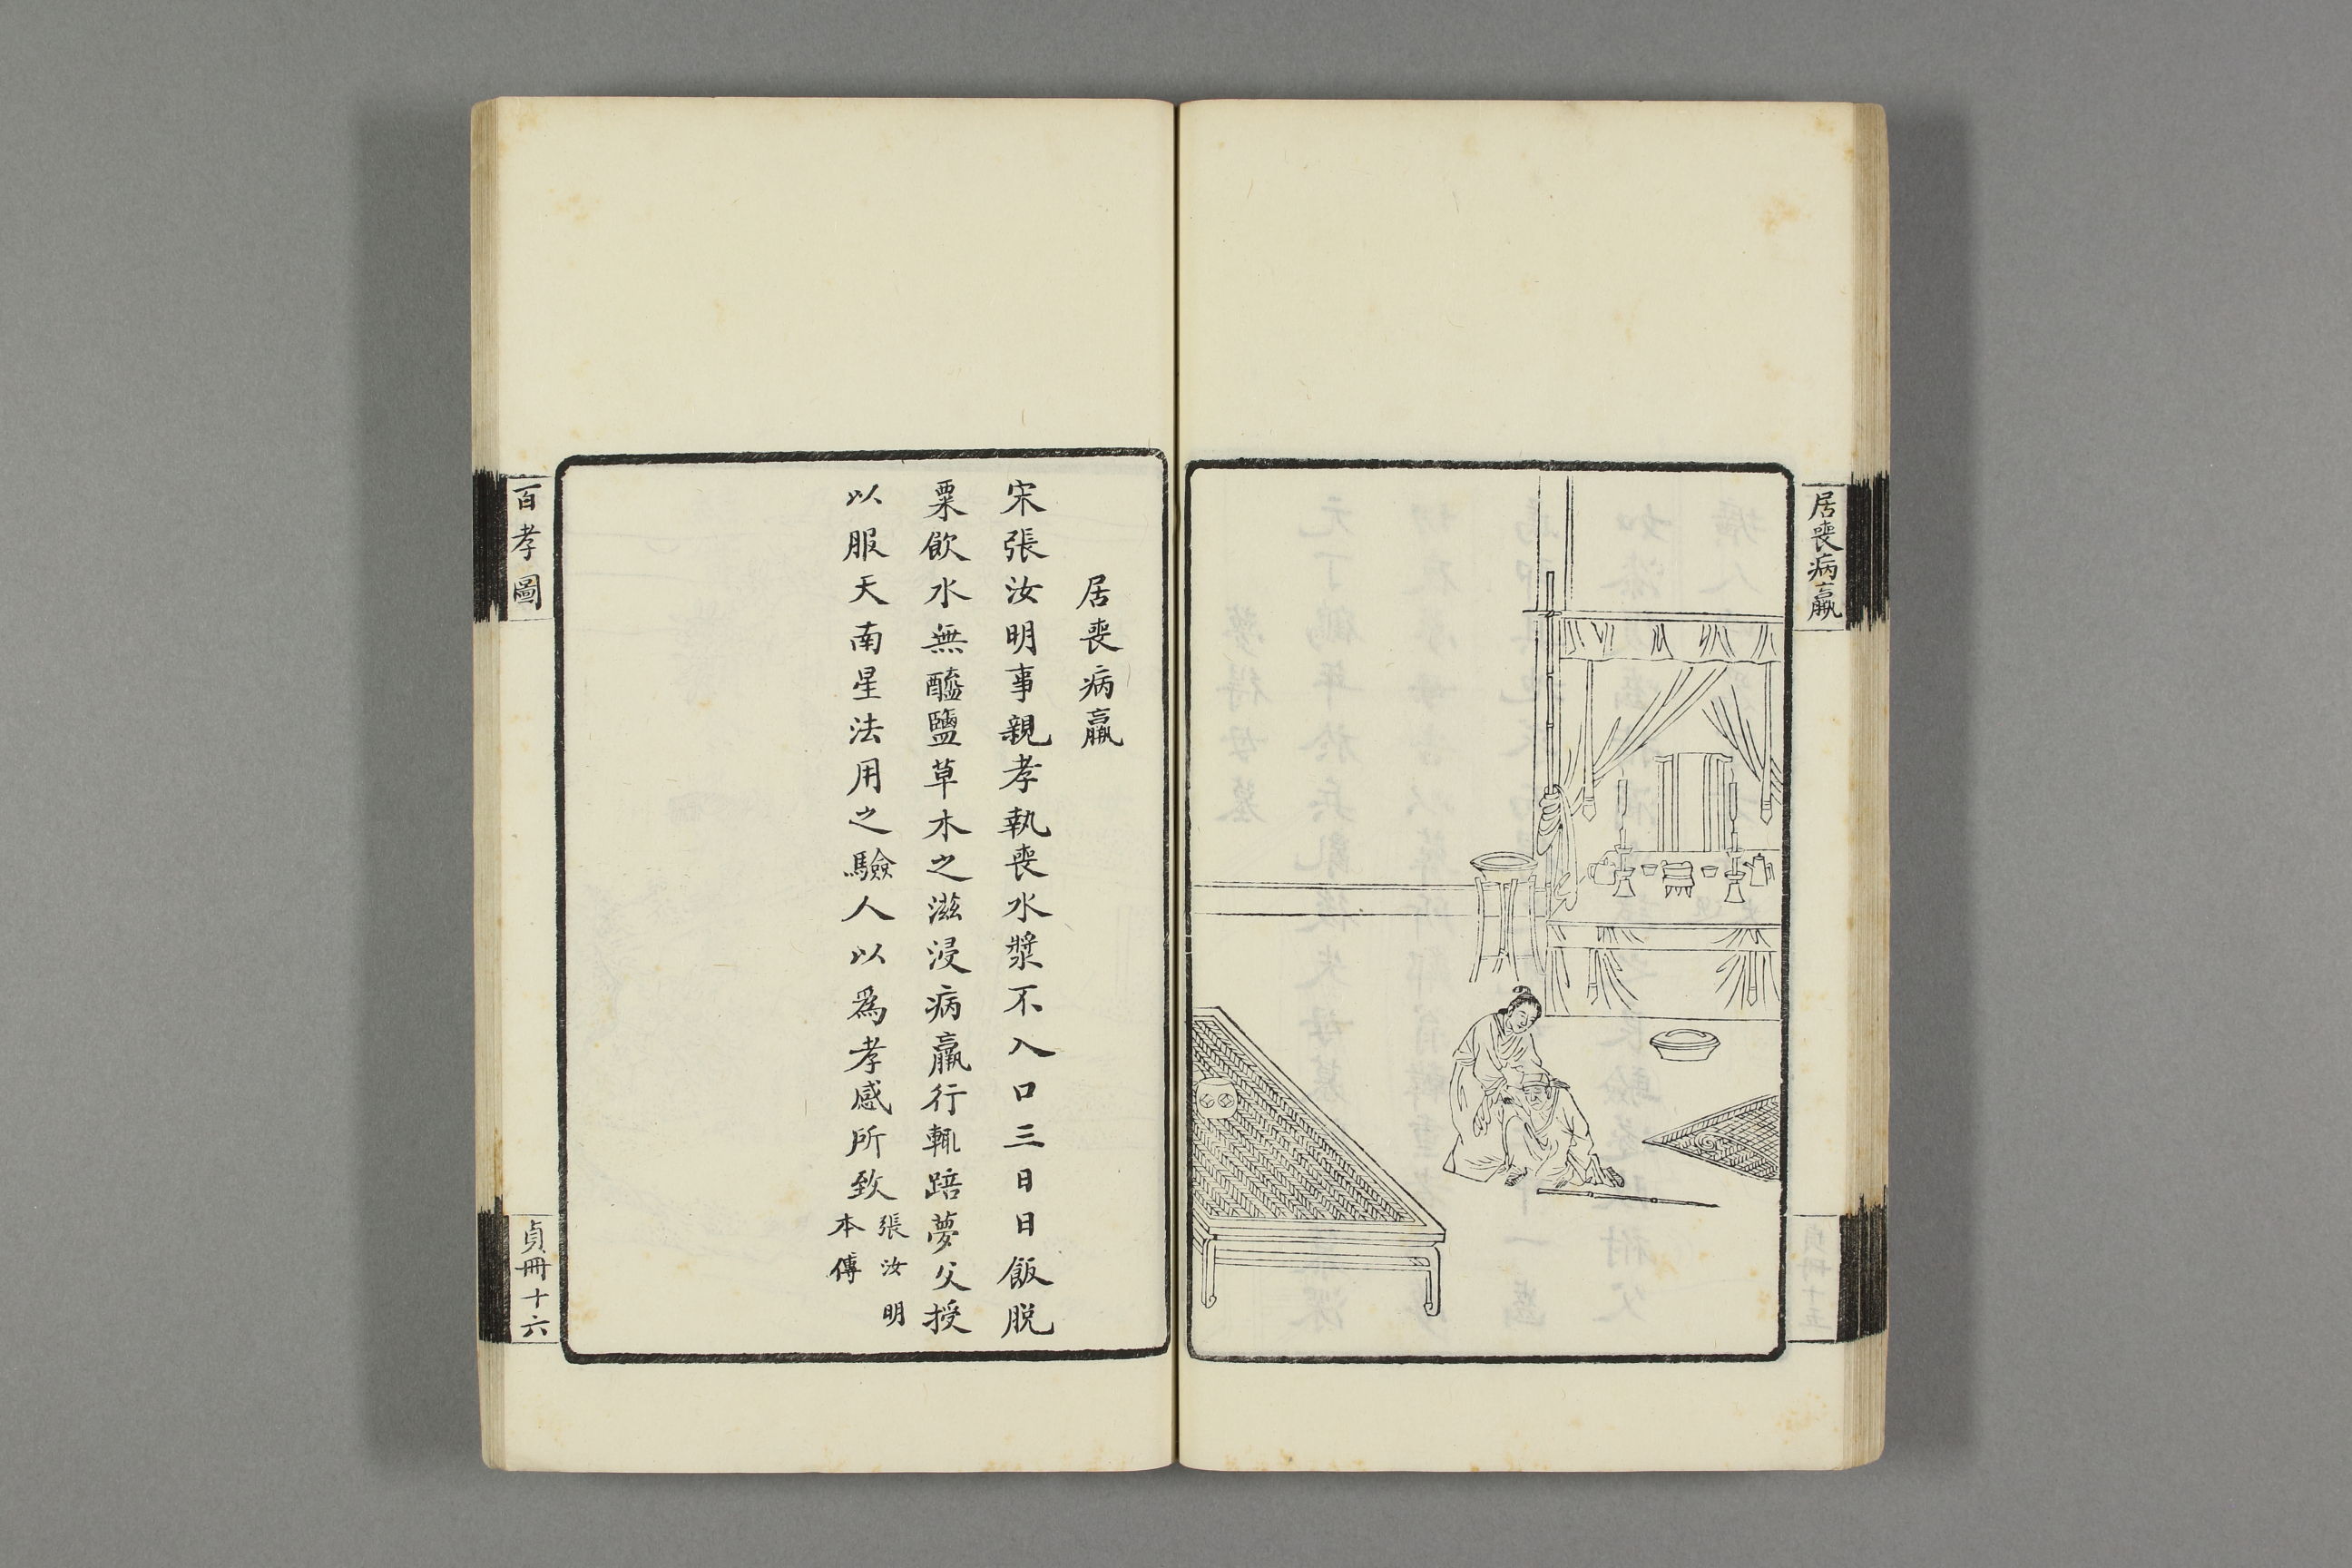 居喪病羸
居喪病羸
宋張汝明事親孝執喪水漿不入口三日日飯脱
粟飲水無醯鹽草木之滋浸病羸行輒踣夢父授
以服天南星法用之驗人以爲孝感所致
張汝明
本傳
百孝圖
貞冊十六